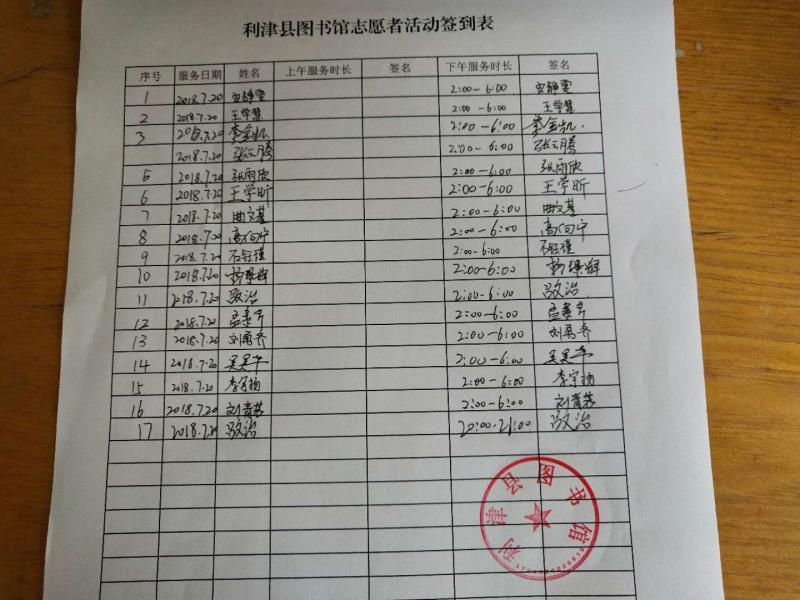 利津县图书馆志愿者活动签到表
序号 服务日期 姓名 上午服务时长 签名 下午服务时长 签名
1 2018.7.20 2:00-6:00
2 2018.7.20 王学慧 2:00-6:00 王学慧
3 2018.7.20 李金凯 2:00-6:00 李金凯.
2018.7.20 张云腾 2:00-6:00 张云腾
5 2018.7.20 张雨欣 2:00-6:00 张雨欣
6 2018.7.20 王学昕 2:00-6:00 王学昕
7 2018.7.20 曲文基 2:00-6:00 曲文基
8 2018.7.20 高向宁 2:00-6:00 高向宁
9 2018.7.20 石钰瑾 2:00-6:00 石钰瑾
10 2018.7.20 2:00-6:00
11 2018.7.20 2:00-6:00
12 2018.7.20 2:00-6:00
13 2018.7.20 2:00-6:00
14 2018.7.20 2:00-6:00
15 2018.7.20 李宇扬 2:00-6:00 李宇扬
16 2018.7.20 刘青荔 2:00-6:00 刘青荔
17 20:00-21:00
利津县图书馆